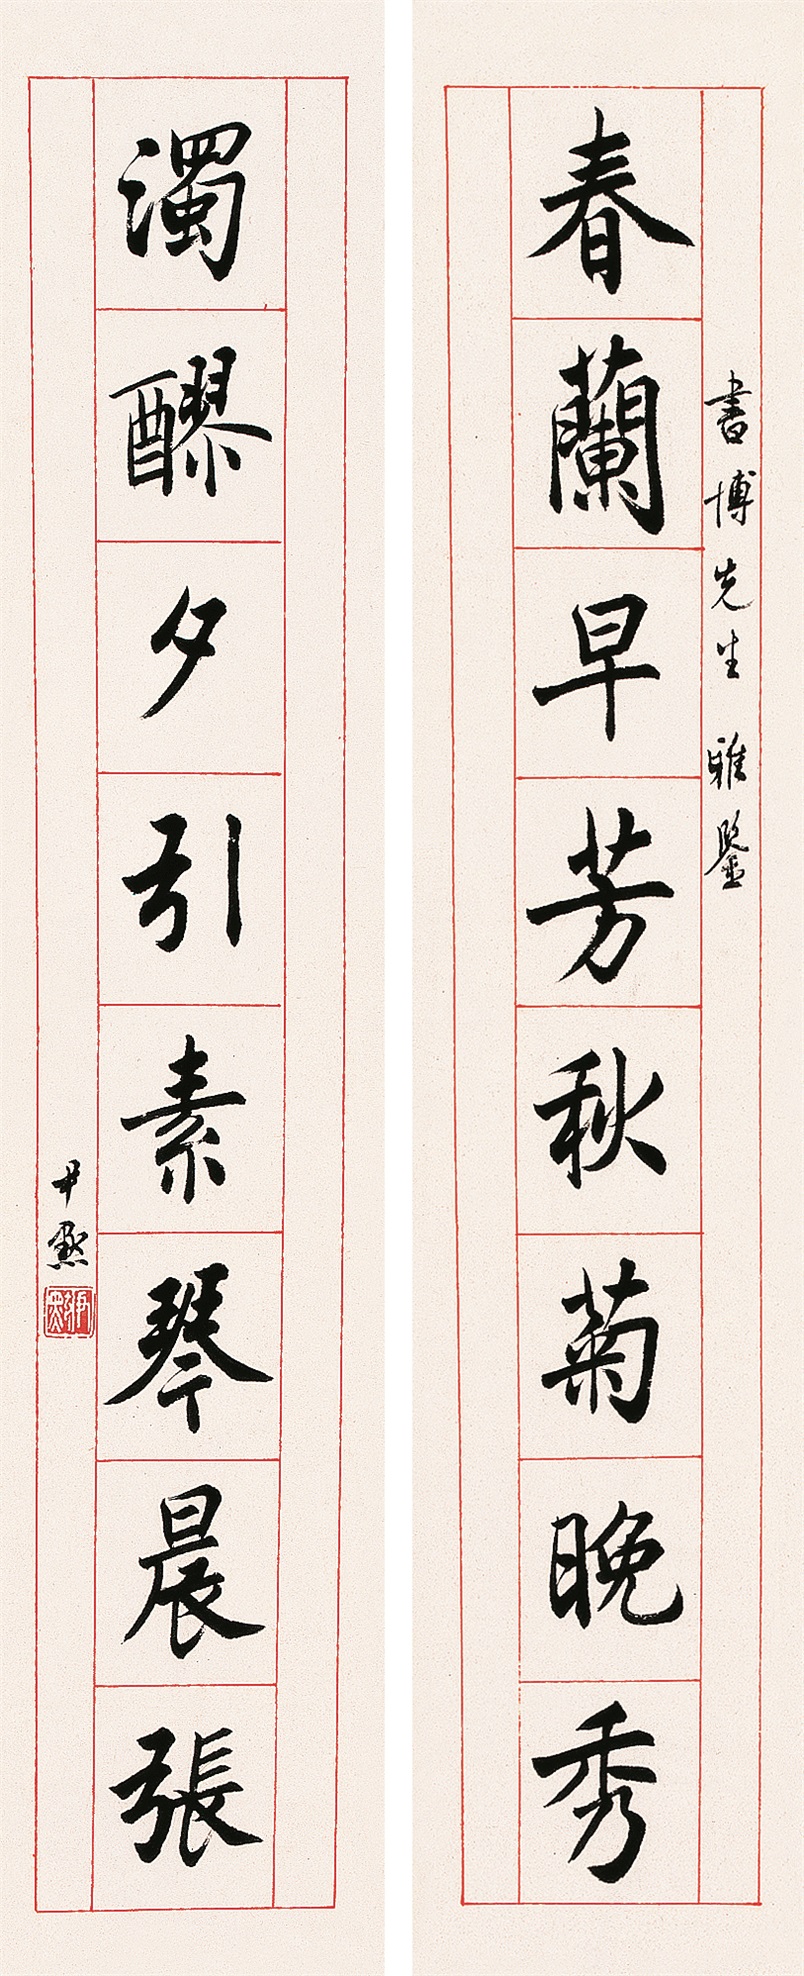 書博先生 雅鑒
春蘭早芳秋菊晚秀
濁醪夕引素琴晨張
尹默